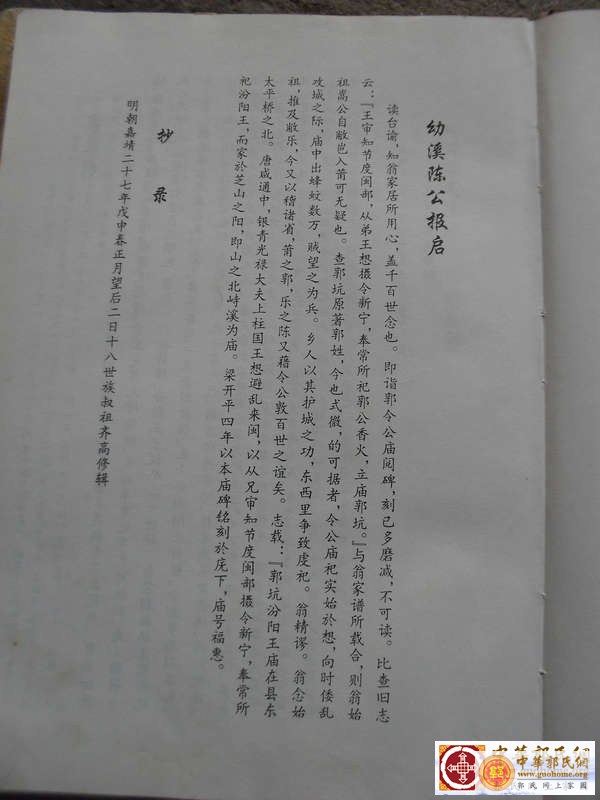 幼溪陈公报启
读台谕，知翁家居所用心，盖千百世念也。即诣郭令公庙阅碑，刻已多磨减，不可读。比查旧志
云：『王审知节度闽部，从弟王想摄令新宁，奉常所祀郭公香火，立庙郭坑。』与翁家谱所载合，则翁始
祖嵩公自敝邑入莆可无疑也。查郭坑原著郭姓，今也式微，的可据者，令公庙祀实始於想，向时倭乱
攻城之际，庙中出蜂蚊数万，贼望之为兵。乡人以其护城之功，东西里争致虔祀。翁精谬。翁念始
祖，推及敝乐，今又以稽诸省，莆之郭，乐之陈又藉令公敦百世之谊矣。志载：『郭坑汾阳王庙在县东
太平桥之北。唐咸通中，银青光禄大夫上柱国王想避乱来闽，以从兄审知节度闽部摄令新宁，奉常所
祀汾阳王，而家於芝山之阳，即山之北峙溪为庙。梁开平四年以本庙碑铭刻於庑下，庙号福惠。
抄录
明朝嘉靖二十七年戊申春正月望后二日十八世族叔祖齐高修辑
中华郭氏网
中華郭氏網
www.guohome.org
郭氏网上家园